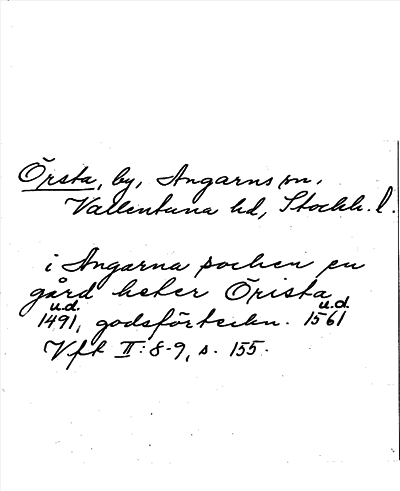 Örsta, by, Angarns sn,
Vallentuna hd, Stockh. l.
i Angarna sochen en
gård heter Örista
u.d. u.d.
1491, godsförteckn. 1561
Vft II: 8-9, s. 155.